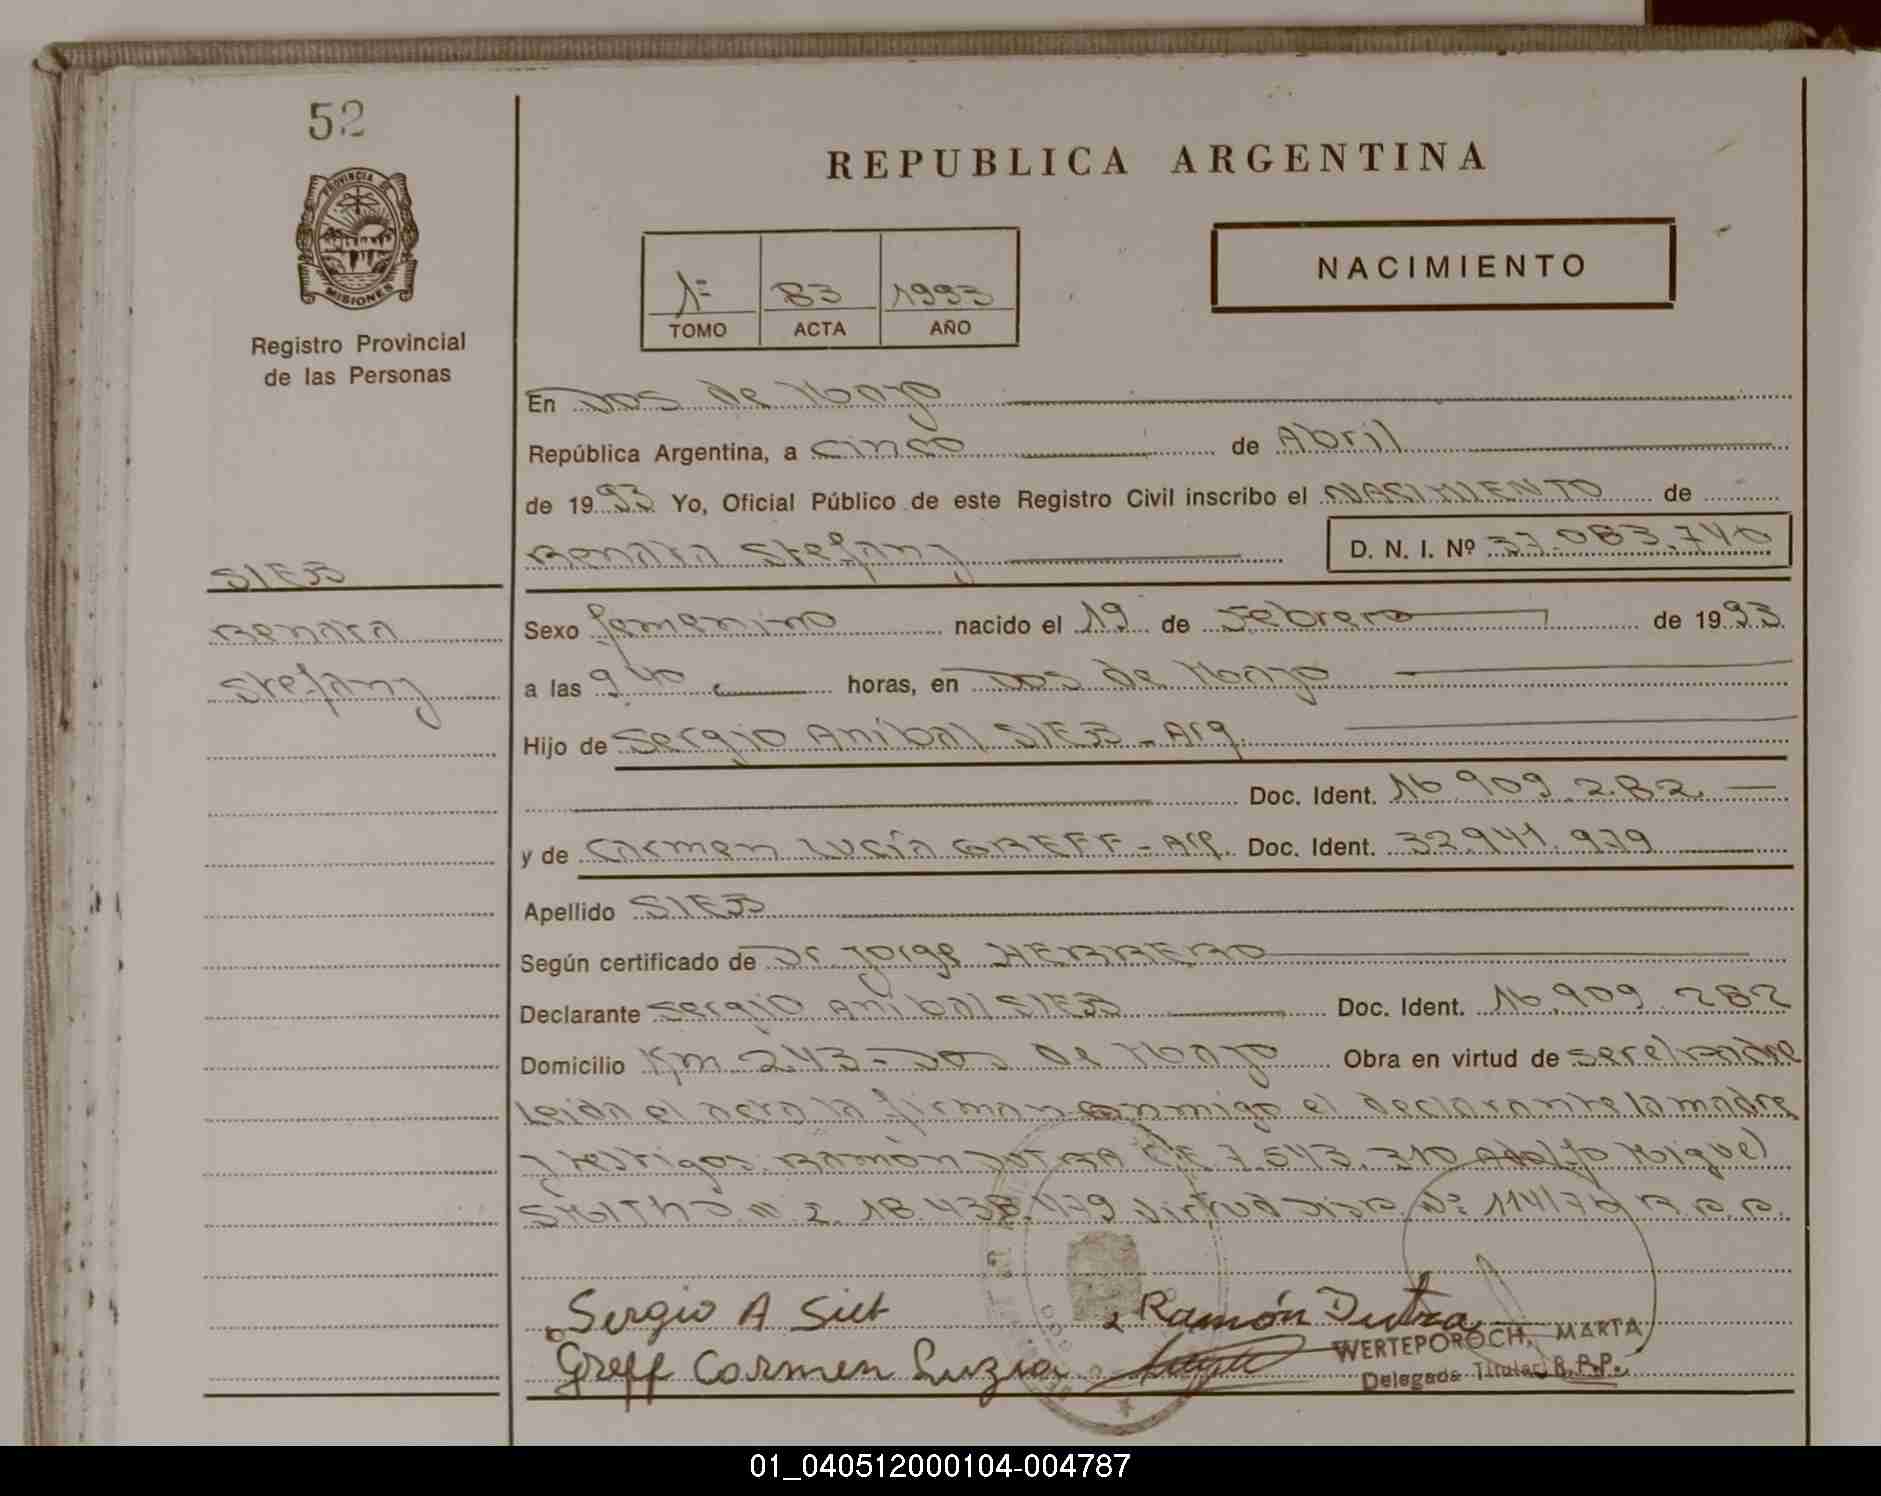 52
REPUBLICA ARGENTINA
PROVINCIA DE
MISIONES
Registro Provincial
de las Personas
1º 83 1993
TOMO ACTA AÑO
NACIMIENTO
En Dos de Mayo
República Argentina, a cinco de Abril
de 1993 Yo, Oficial Público de este Registro Civil inscribo el NACIMIENTO de
Renata Stefany D. N. I. Nº 37.083.740
SIEB
Renata
Stefany
Sexo femenino nacido el 19 de Febrero de 1993.
a las 9.40 horas, en Dos de Mayo
Hijo de Sergio Anibal SIEB - Arg.
Doc. Ident. 16.909.282.
y de Carmen Lucía GREFF - Arg. Doc. Ident. 32.941.979
Apellido SIEB
Según certificado de Dr. Jorge HERRERO
Declarante Sergio Anibal SIEB Doc. Ident. 16.909.282
Domicilio Km 243 - Dos de Mayo Obra en virtud de ser el padre
Leida el acta la firman conmigo el declarante la madre
y testigos: Ramón DUTRA C.I. 7.543.310 Adolfo Miguel
18.438.479 virtud Disp. Nº 114/70 R.P.P.
Sergio A Sieb Ramón Dutra
Greff Carmen Luzia
WERTEPOROCH, MARTA
Delegada Titular R.P.P.
01_040512000104-004787